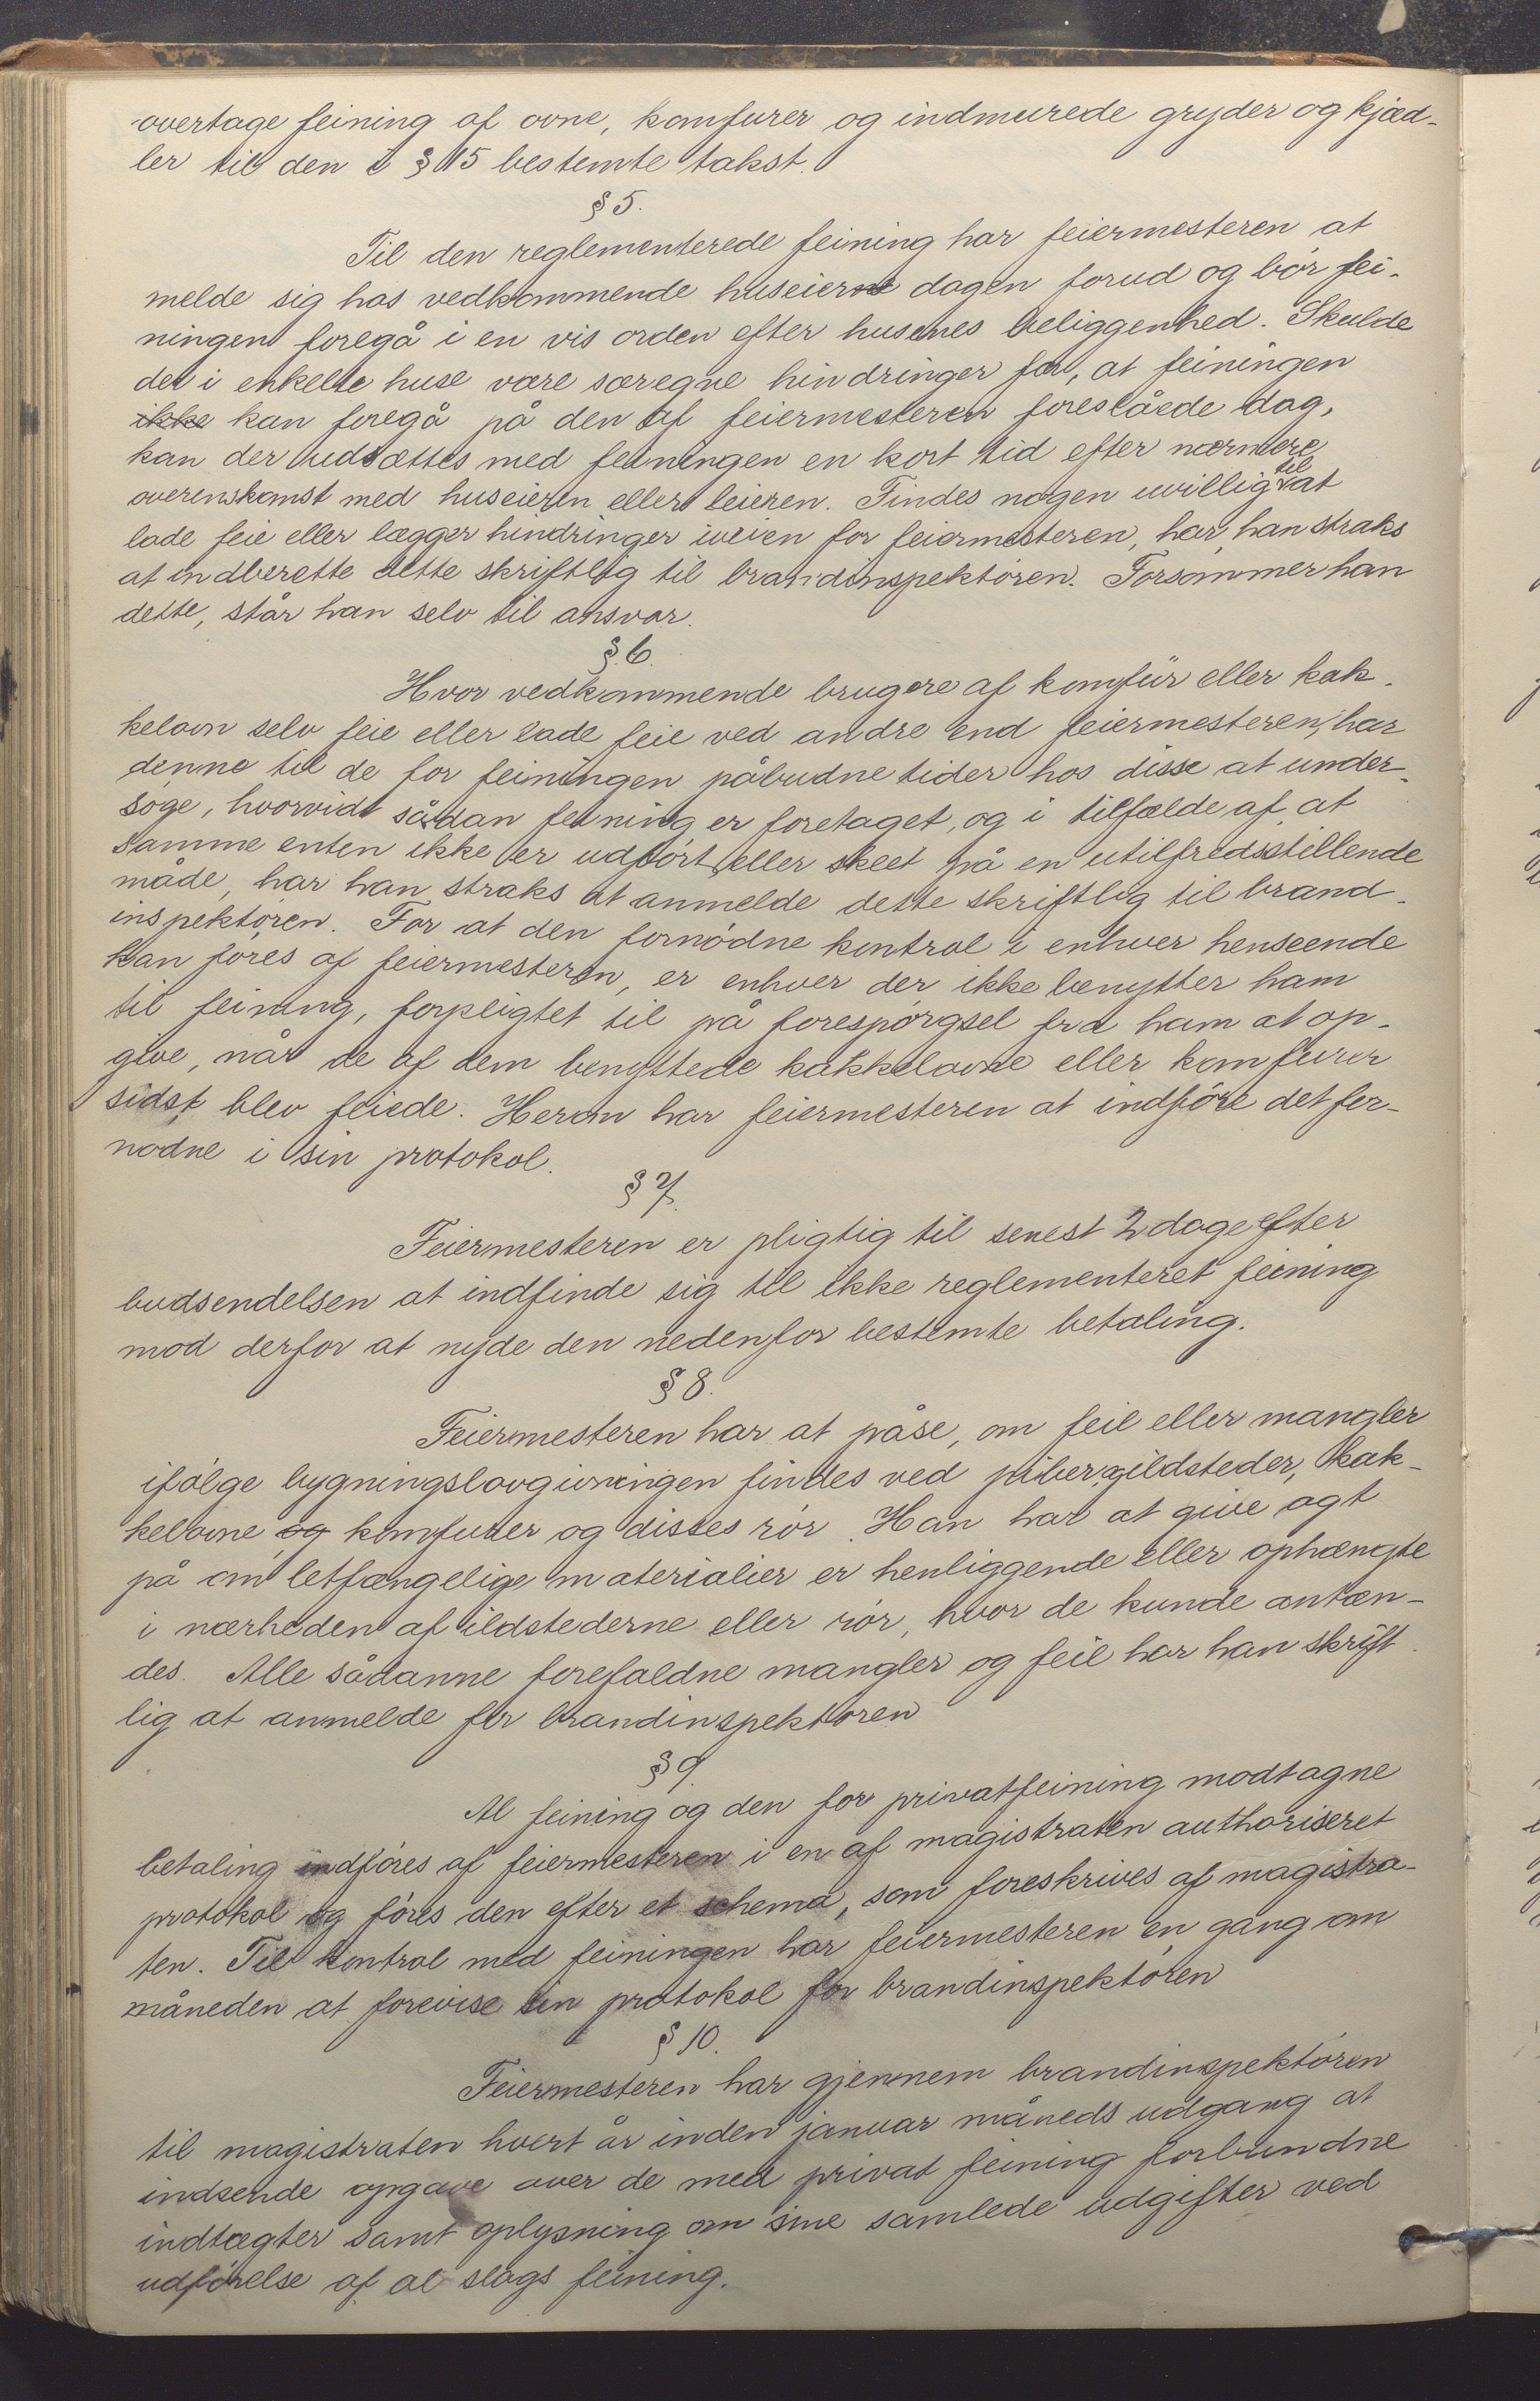 overtage feining af ovne, komfurer og indmurede gryder og kjæd-
ler til den i § 15 bestemte takst.
§ 5.
Til den reglementerede feining har feiermesteren at
melde sig hos vedkommende huseierne dagen forud og bør fei-
ningen foregå i en vis orden efter husenes beliggenhed. Skulde
det i enkelte huse være særegne hindringer for, at feiningen
ikke kan foregå på den af feiermesteren foreslåede dag,
kan der udsættes med feiningen en kort tid efter nærmere
overenskomst med huseieren eller leieren. Findes nogen uvillig til at
lade feie eller lægger hindringer iveien for feiermesteren, har han straks
at indberette dette skriftlig til brandinspektøren. Forsømmer han
dette, står han selv til ansvar.
§ 6.
Hvor vedkommende brugere af komfür eller kak-
kelovn selv feie eller lade feie ved andre end feiermesteren, har
denne til de for feiningen påbudne tider hos disse at under-
søge, hvorvidt sådan feining er foretaget, og i tilfælde af at
samme enten ikke er udført eller skeet på en utilfredsstillende
måde, har han straks at anmelde dette skriftlig til brand-
inspektøren. For at den fornødne kontrol i enhver henseende
kan føres af feiermesteren, er enhver der ikke benytter ham
til feining, forpligtet til på forespørgsel fra ham at op-
give, når de af dem benyttede kakkelovne eller komfurer
sidst blev feiede. Herom har feiermesteren at indføre det for-
nødne i sin protokol.
§ 7.
Feiermesteren er pligtig til senest 2 dage efter
budsendelsen at indfinde sig til ikke reglementeret feining
mod derfor at nyde den nedenfor bestemte betaling.
§ 8.
Feiermesteren har at påse, om feil eller mangler
ifølge bygningslovgivningen findes ved piber, ildsteder, kak-
kelovne og komfurer og disses rør. Han har at give agt
på om letfængelige materialier er henliggende eller ophængte
i nærheden af ildstederne eller rør, hvor de kunde antæn-
des. Alle sådanne forefaldne mangler og feil har han skrift-
lig at anmelde for brandinspektøren
§ 9.
Al feining og den for privatfeining modtagne
betaling indføres af feiermesteren i en af magistraten authoriseret
protokol og føres den efter et schema, som foreskrives af magistra-
ten. Til kontrol med feiningen har feiermesteren en gang om
måneden at forevise sin protokol for brandinspektøren
§ 10.
Feiermesteren har gjennem brandinspektøren
til magistraten hvert år inden januar måneds udgang at
indsende opgave over de med privat feining forbundne
indtægter samt oplysning om sine samlede udgifter ved
udførelse af al slags feining.